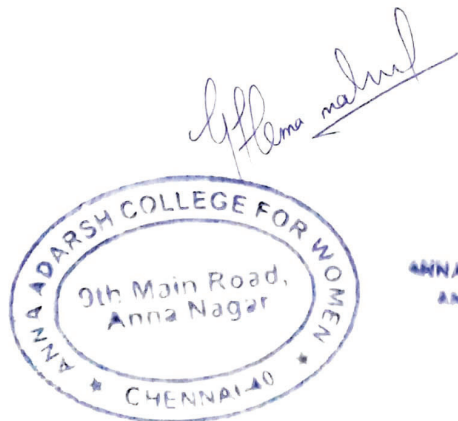 Hema
ANNA ADARSH COLLEGE FOR WOMEN
9th Main Road,
Anna Nagar
★ CHENNAI-40 ★
ANNA